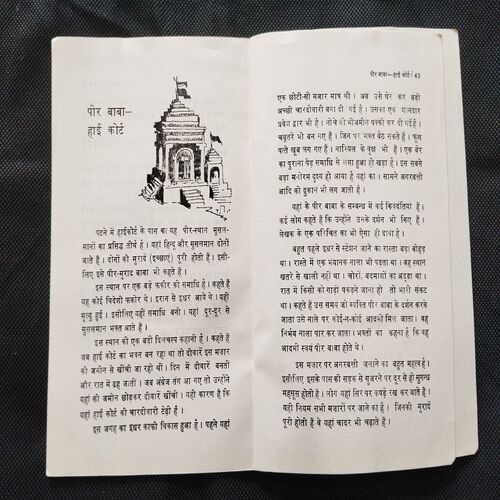 पीर बाबा—
हाई कोर्ट
पटने में हाईकोर्ट के पास का यह पीर-स्थान मुसल-
मानों का प्रसिद्ध तीर्थ है। यहां हिन्दू और मुसलमान दोनों
जाते हैं। दोनों की मुरादें (इच्छाएं) पूरी होती हैं। इसी-
लिए इसे पीर-मुराद बाबा भी कहते हैं।
इस स्थान पर एक बड़े फकीर की समाधि है। कहते हैं
यह कोई विदेशी फकीर थे। ईरान से इधर आये थे। यहीं
मृत्यु हुई। इसीलिए यहीं समाधि बनी। यहां दूर-दूर से
मुसलमान भक्त आते हैं।
इस स्थान की एक बड़ी दिलचस्प कहानी है। कहते हैं
जब हाई कोर्ट का भवन बन रहा था तो दीवारें इस मजार
की जमीन से खींची जा रही थीं। दिन में दीवारें बनतीं
और रात में ढह जातीं। जब अंग्रेज तंग आ गए तो उन्होंने
यहां की जमीन छोड़कर दीवारें खींची। यही कारण है कि
यहां हाई कोर्ट की चारदीवारी टेढ़ी है।
इस जगह का इधर काफी विकास हुआ है। पहले यहां
पीर बाबा—हाई कोर्ट / 43
एक छोटी-सी मजार मात्र थी। अब उसे घेर कर बड़ी
अच्छी चारदीवारी बना दी गई है। उसका एक शानदार
प्रवेश द्वार भी है। नीचे की भी जमीन पक्की कर दी गई है।
चबूतरे भी बन गए हैं। जिन पर भक्त बैठ सकते हैं। फूल
पत्ते खूब लग गए हैं। नारियल के वृक्ष भी हैं। एक बेर
का पुराना पेड़ समाधि से लगा हुआ ही खड़ा है। इन सबसे
बड़ा मनोरम दृश्य हो आया है यहां का। सामने अगरबत्ती
आदि की दुकान भी लग जाती हैं।
यहां के पीर बाबा के सम्बन्ध में कई किंवदंतियां हैं।
कई लोग कहते हैं कि उन्होंने उनके दर्शन भी किए हैं।
लेखक के एक परिचित का भी ऐसा ही दावा है।
बहुत पहले इधर से स्टेशन जाने का रास्ता बड़ा बीहड़
था। रास्ते में एक भयानक नाला भी पड़ता था। वह स्थान
खतरे से खाली नहीं था। चोरों, बदमाशों का अड्डा था।
रात में किसी को गाड़ी पकड़ने जाना हो तो भारी संकट
था। कहते हैं उस समय जो व्यक्ति पीर बाबा के दर्शन करके
जाता उसे नाले पर कोई-न-कोई आदमी मिल जाता। वह
निर्भय नाला पार कर जाता। भक्तों का कहना है कि वह
आदमी स्वयं पीर बाबा होते थे।
इस मजार पर अगरबत्ती जलाने का बहुत महत्व है।
इसीलिए इसके पास की सड़क से गुजरने पर दूर से ही सुगन्ध
महसूस होती है। लोग यहां सिर पर कपड़े रख कर जाते हैं।
यही नियम सभी मजारों पर जाने का है। जिनकी मुरादें
पूरी होती हैं वे यहां चादर भी चढ़ाते हैं।